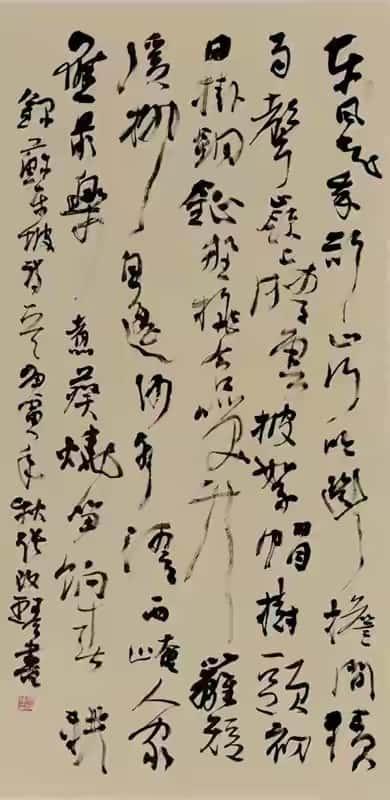 東風知我欲山行吹斷檐間積
雨聲嶺上晴雲披絮帽樹頭初
日掛銅鉦野桃含笑竹籬短
溪柳自搖沙水清西崦人家
應最樂煮葵燒筍餉春耕
錄蘇東坡詩一首寅年秋張改琴書